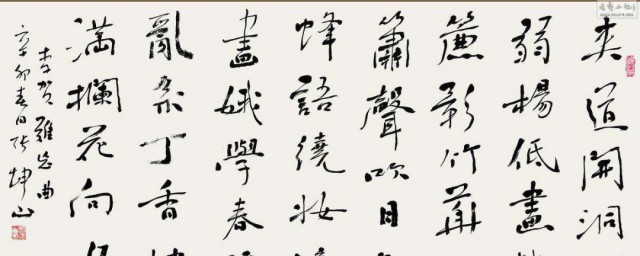 夾道開洞
弱楊低畫
簾影竹華
簫聲吹日
蜂語繞妝
畫娥學春
亂系丁香
滿欄花向
李賀難忘曲
辛卯春日张坤山